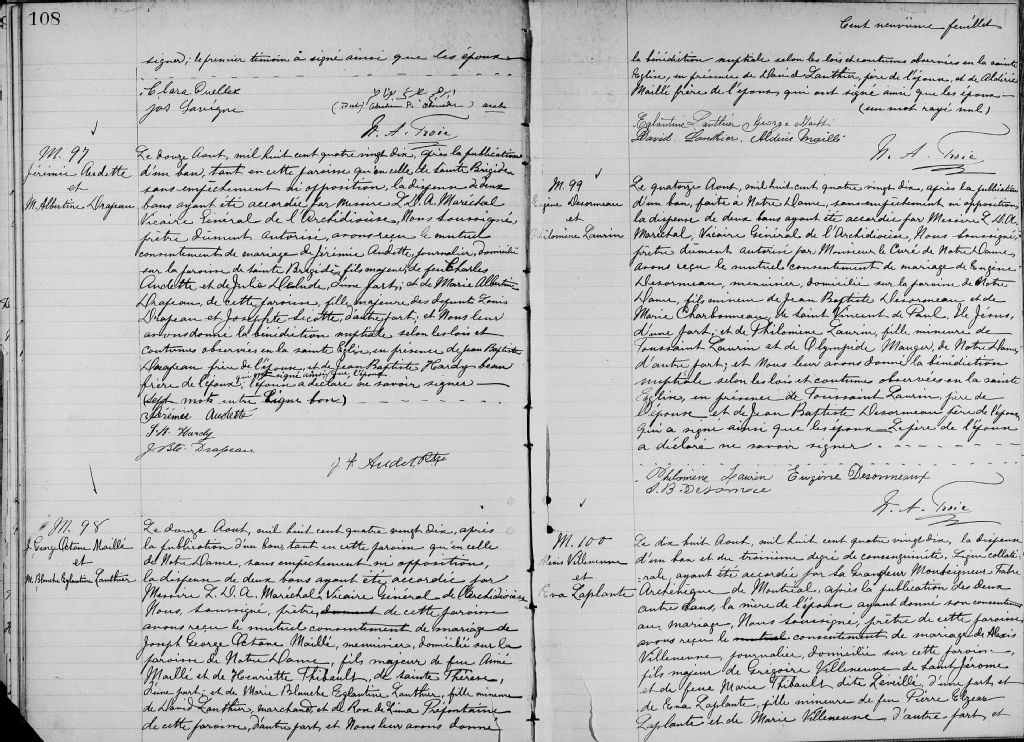 108
signer; le premier témoin a signé ainsi que les époux
Clara Ouellet
Jos Lavigne
N. A. Troie
M. 97
Jérémie Audette
et
M. Albertine Drapeau
Le douze Aout, mil huit cent quatre vingt dix, après la publication
d'un ban, tant en cette paroisse qu'en celle de Sainte Brigide
sans empêchement ni opposition, la dispense de deux
bans ayant été accordée par Messire L. D. A. Maréchal
Vicaire Général de l'Archidiocèse, Nous soussigné,
prêtre dûment autorisé, avons reçu le mutuel
consentement de mariage de Jérémie Audette, journalier, domicilié
sur la paroisse de Sainte Brigide, fils majeur de feu Charles
Audette et de Julie, d'une part; et de Marie Albertine
Drapeau, de cette paroisse, fille majeure des défunts Louis
Drapeau et Josephte Sicotte, d'autre part; et Nous leur
avons donné la bénédiction nuptiale selon les lois et
coutumes observées en la sainte Eglise, en présence de Jean Baptiste
Drapeau frère de l'épouse, et de Jean Baptiste Hardy beau
qui ont signé ainsi que l'époux
frère de l'époux, l'épouse a déclaré ne savoir signer
(sept mots entre ligne bon)
Jérémie Audette
J. B. Hardy
J. Bte. Drapeau
Audet, Ptre
M. 98
J. George Octave Maillé
et
M. Blanche Eglantine Lanthier
Le douze Aout, mil huit cent quatre vingt dix, après
la publication d'un ban, tant en cette paroisse qu'en celle
de Notre Dame, sans empêchement ni opposition,
la dispense de deux bans ayant été accordée par
Messire L. D. A. Maréchal, Vicaire Général de l'Archidiocèse
Nous, soussigné, prêtre, dûment de cette paroisse
avons reçu le mutuel consentement de mariage de
Joseph George Octave Maillé, menuisier, domicilié sur la
paroisse de Notre Dame, fils majeur de feu Aimé
Maillé et de Henriette Thibault, de Sainte Thérèse,
d'une part; et de Marie Blanche Eglantine Lanthier, fille mineure
de David Lanthier, marchand, et de Rose de Lima Préfontaine
de cette paroisse, d'autre part, et Nous leur avons donné
Cent neuvième feuillet
la bénédiction nuptiale selon les lois et coutumes observées en la sainte
Eglise, en présence de David Lanthier, père de l'épouse, et de Aldéric
Maillé frère de l'époux, qui ont signé ainsi que les époux
(un mot rayé nul)
Eglantine Lanthier George Maillé
David Lanthier Aldéric Maillé
N. A. Troie
M. 99
Eugène Desormeau
et
Philomène Laurin
Le quatorze Aout, mil huit cent quatre vingt dix, après la publication
d'un ban, faite à Notre Dame, sans empêchement ni opposition,
la dispense de deux bans ayant été accordée par Messire L. D. A.
Maréchal, Vicaire Général de l'Archidiocèse, Nous soussigné,
prêtre dûment autorisé par Monsieur le Curé de Notre Dame,
avons reçu le mutuel consentement de mariage de Eugène
Desormeau, menuisier, domicilié sur la paroisse de Notre
Dame, fils mineur de Jean Baptiste Desormeau et de
Marie Charbonneau, de Saint Vincent de Paul, Ile Jésus,
d'une part; et de Philomène Laurin, fille mineure de
Toussaint Laurin et de Olympide Manger, de Notre Dame,
d'autre part; et Nous leur avons donné la bénédiction
nuptiale selon les lois et coutumes observées en la sainte
Eglise, en présence de Toussaint Laurin, père de
l'épouse et de Jean Baptiste Desormeau père de l'époux
qui a signé ainsi que les époux. Le père de l'épouse
a déclaré ne savoir signer
Philomène Laurin Eugène Desormeaux
J. B. Desormeau
N. A. Troie
M. 100
Alexis Villeneuve
et
Eva Laplante
Le dix huit Aout, mil huit cent quatre vingt dix, la dispense
d'un ban et du troisième degré de consanguinité, ligne collaté
rale, ayant été accordée par Sa Grandeur Monseigneur Fabre
Archevêque de Montréal, après la publication des deux
autres bans, la mère de l'épouse ayant donné son consentement
au mariage, Nous soussigné, prêtre de cette paroisse,
avons reçu le mutuel consentement de mariage de Alexis
Villeneuve journalier, domicilié sur cette paroisse,
fils majeur de Grégoire Villeneuve de Saint Jérôme
et de feue Marie Thibault dite Léveillé, d'une part, et
de Eva Laplante, fille mineure de feu Pierre Elzéar
Laplante et de Marie Villeneuve, d'autre part, et